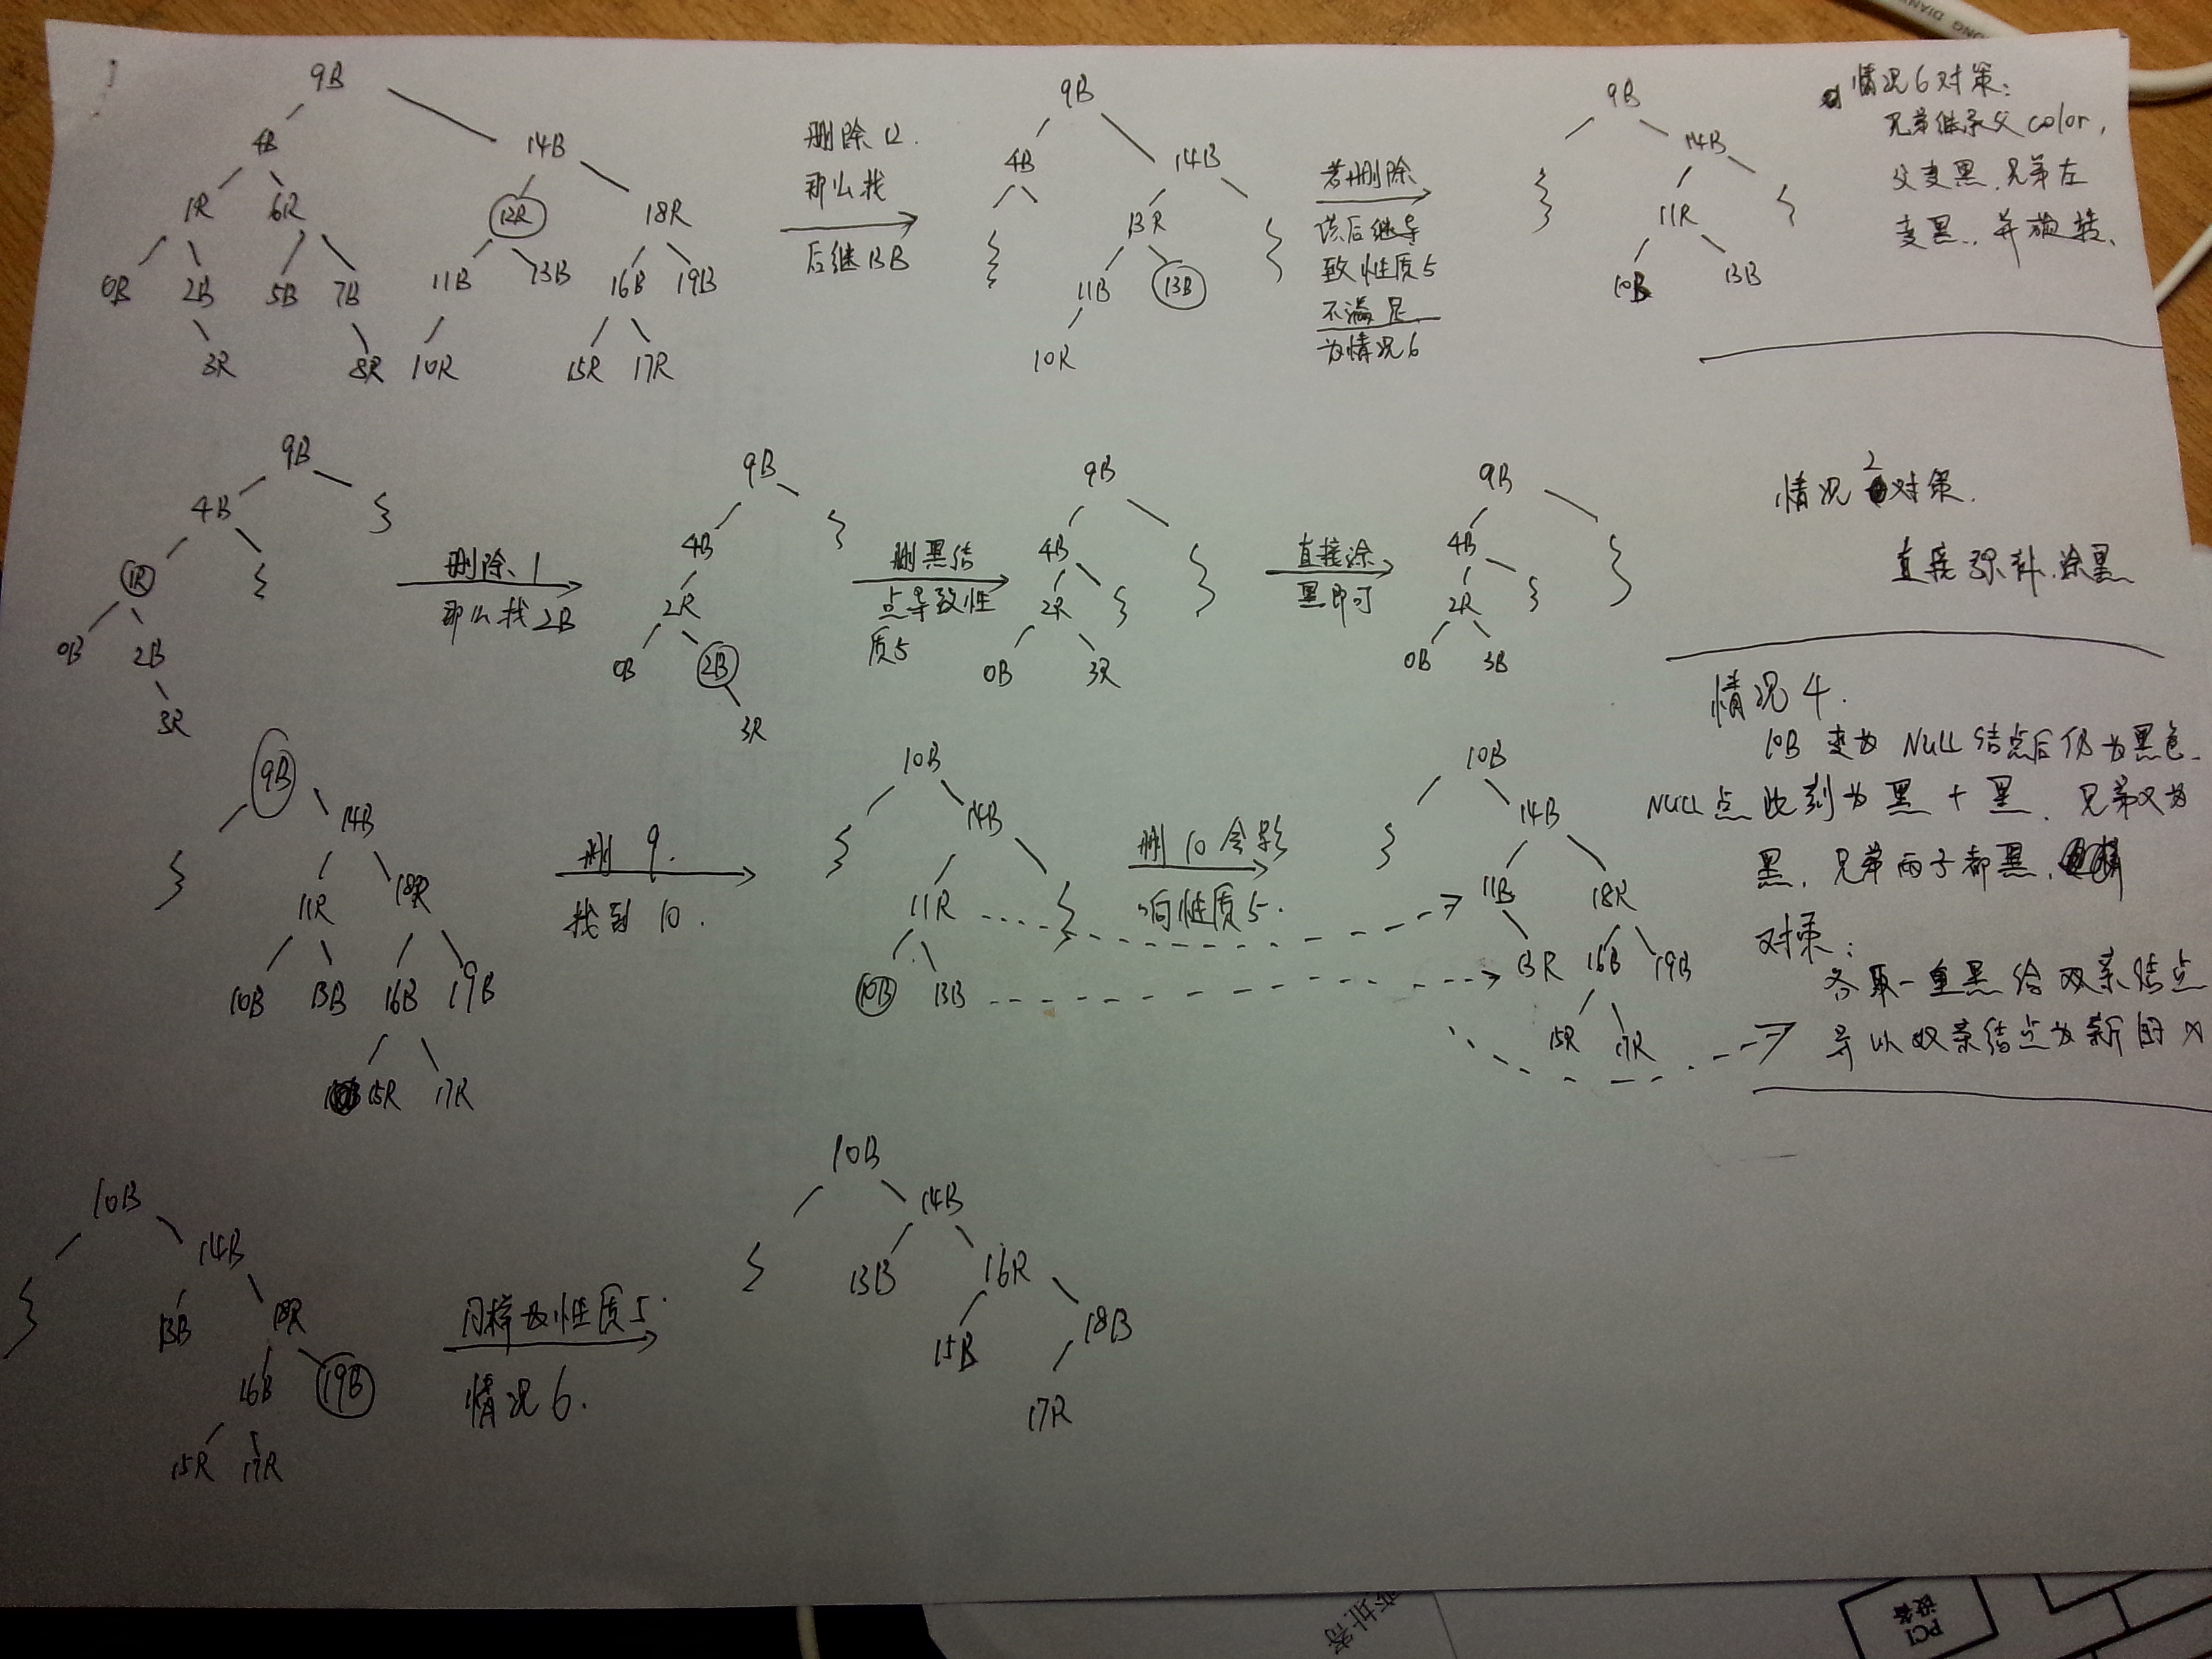 9B
4B 14B
1R 6R 12R 18R
0B 2B 5B 7B 11B 13B 16B 19B
3R 8R 10R 15R 17R
删除12.
那么找
后继13B
9B
4B 14B
13R
11B 13B
10R
若删除
该后继导
致性质5
不满足
为情况6
9B
14B
11R
10B 13B
情况6对策:
兄弟继承父color,
父变黑,兄弟左
变黑,并旋转、
9B
4B
1R
0B 2B
3R
删除1
那么找2B
9B
4B
2R
0B 2B
3R
删黑结
点导致性
质5
9B
4B
2R
0B 3R
直接涂
黑即可
9B
4B
2R
0B 3B
情况2对策.
直接 涂黑
9B
14B
11R 18R
10B 13B 16B 19B
15R 17R
删 9.
找到 10.
10B
14B
11R
10B 13B
删 10 会影
响性质5.
10B
14B
11B 18R
13R 16B 19B
15R 17R
情况 4.
10B 变为 NULL 结点后仍为黑色.
NULL点 此刻为 黑 + 黑. 兄弟又为
黑, 兄弟两子都黑,
对策:
各取一重黑给双亲结点
导以双亲结点为新的X
10B
14B
13B 18R
16B 19B
15R 17R
同样为性质5.
情况6.
10B
14B
13B 16R
15B 18B
17R
PCI
设备